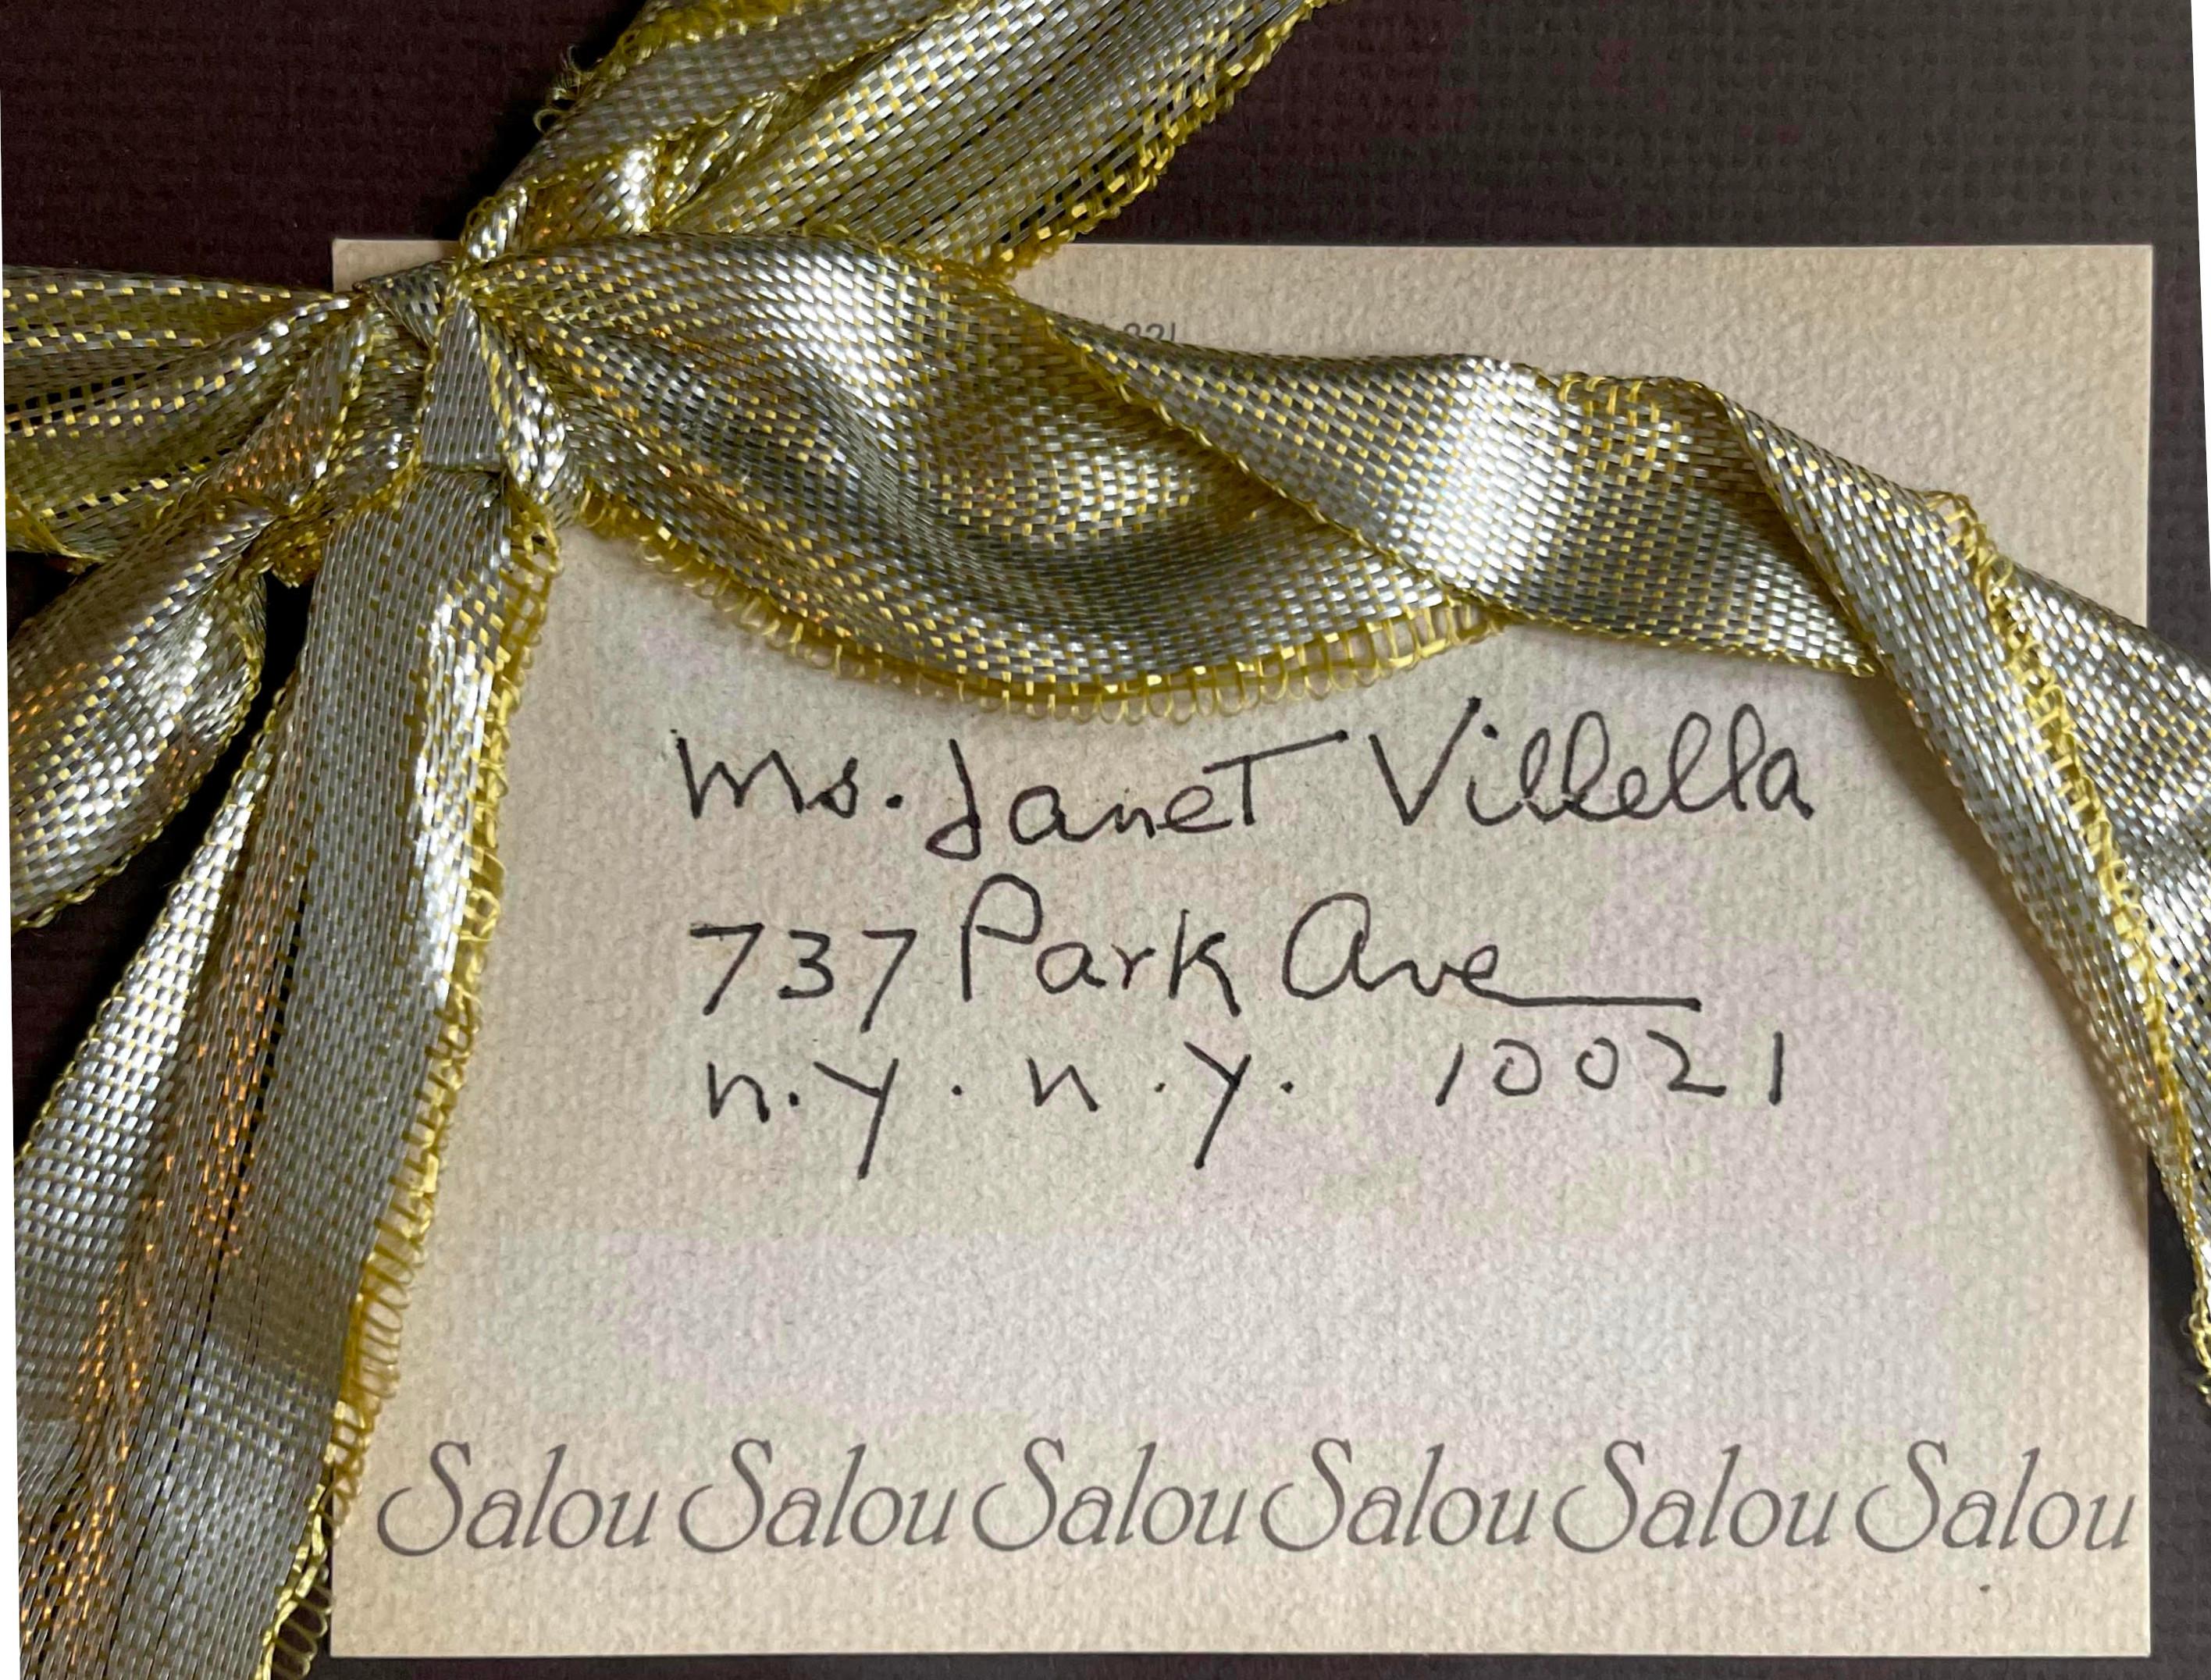 Ms. Janet Villella
737 Park Ave
n.y. n.y. 10021
Salou Salou Salou Salou Salou Salou